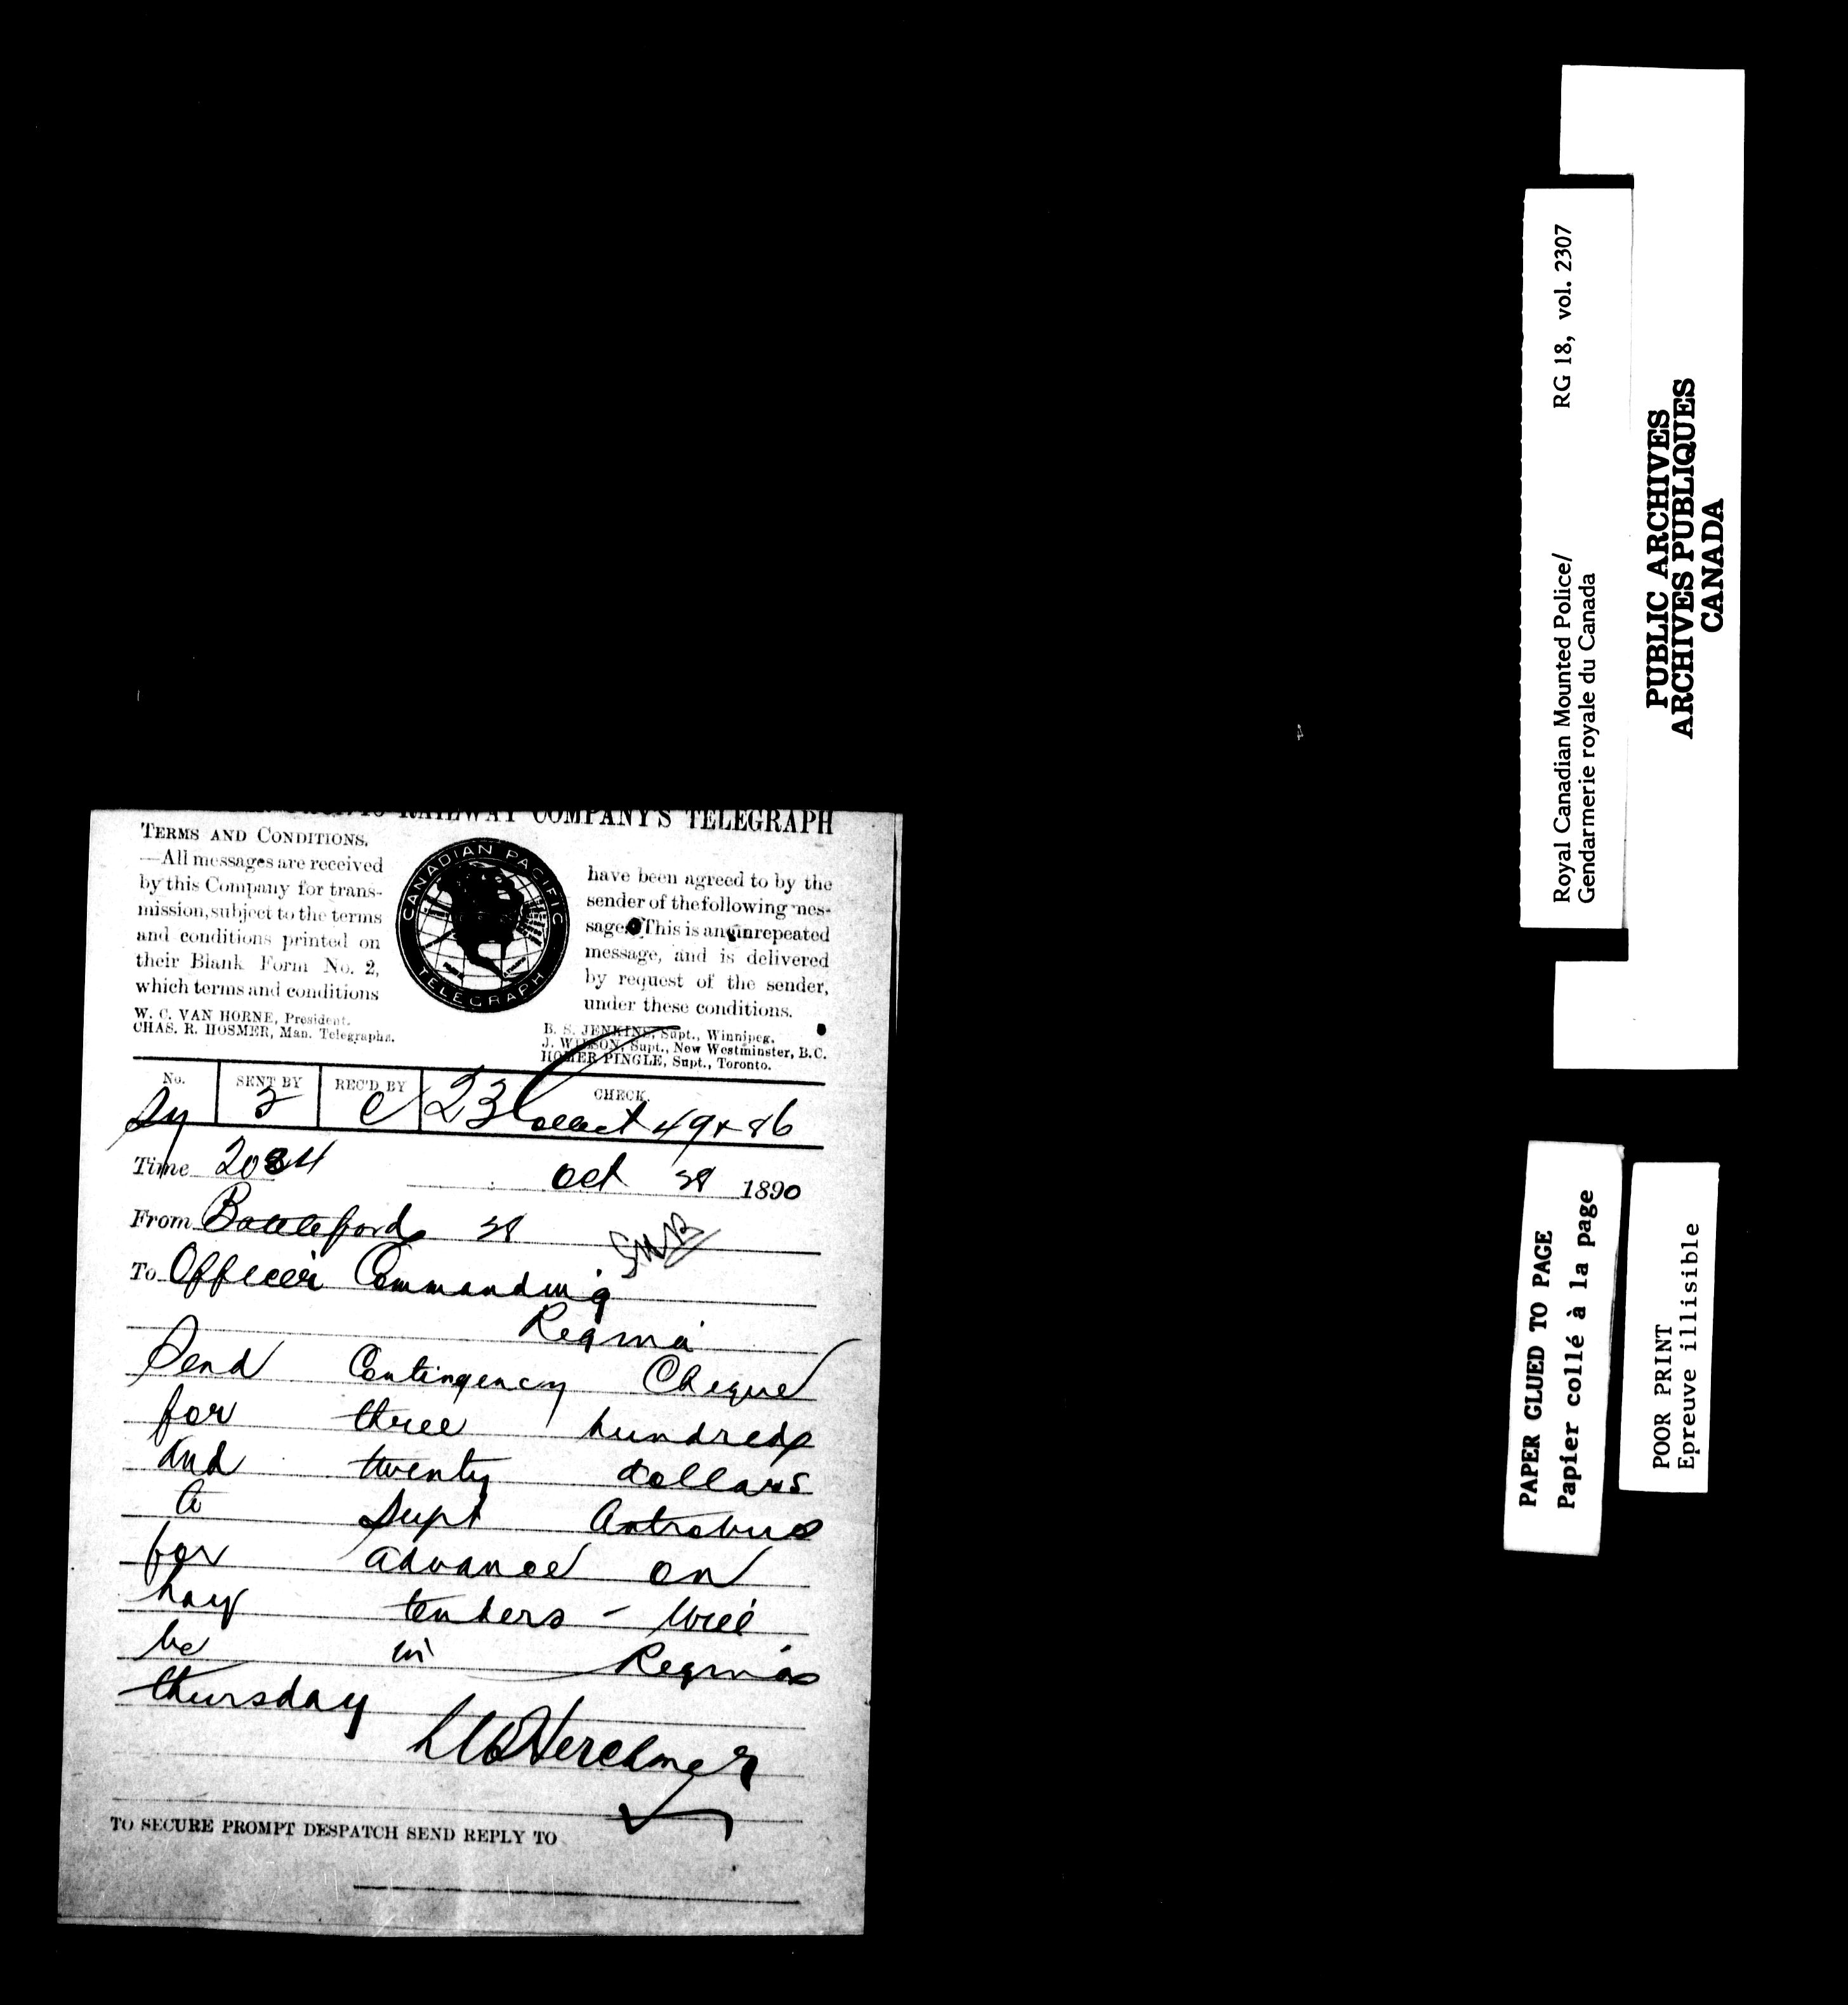 RAILWAY COMPANY'S TELEGRAPH
TERMS AND CONDITIONS.
—All messages are received
by this Company for trans-
mission, subject to the terms
and conditions printed on
their Blank Form No. 2,
which terms and conditions
W. C. VAN HORNE, President.
CHAS. R. HOSMER, Man. Telegraphs.
CANADIAN PACIFIC
TELEGRAPH
have been agreed to by the
sender of the following mes-
sage. This is an unrepeated
message, and is delivered
by request of the sender,
under these conditions.
B. S. JENKINS, Supt., Winnipeg.
J. WILSON, Supt., New Westminster, B.C.
HOMER PINGLE, Supt., Toronto.
No. SENT BY REC'D BY CHECK.
23 Collect 49 + 86
Time
Oct 28 1890
From Battleford 28
To Officer Commanding
Regina
Send Contingency Cheque
for three hundred
and twenty dollars
to Supt Antrobus
for advance on
hay tenders - Will
be in Regina
thursday
LW Herchmer
TO SECURE PROMPT DESPATCH SEND REPLY TO
Royal Canadian Mounted Police/ RG 18, vol. 2307
Gendarmerie royale du Canada
PUBLIC ARCHIVES
ARCHIVES PUBLIQUES
CANADA
PAPER GLUED TO PAGE
Papier collé à la page
POOR PRINT
Epreuve illisible